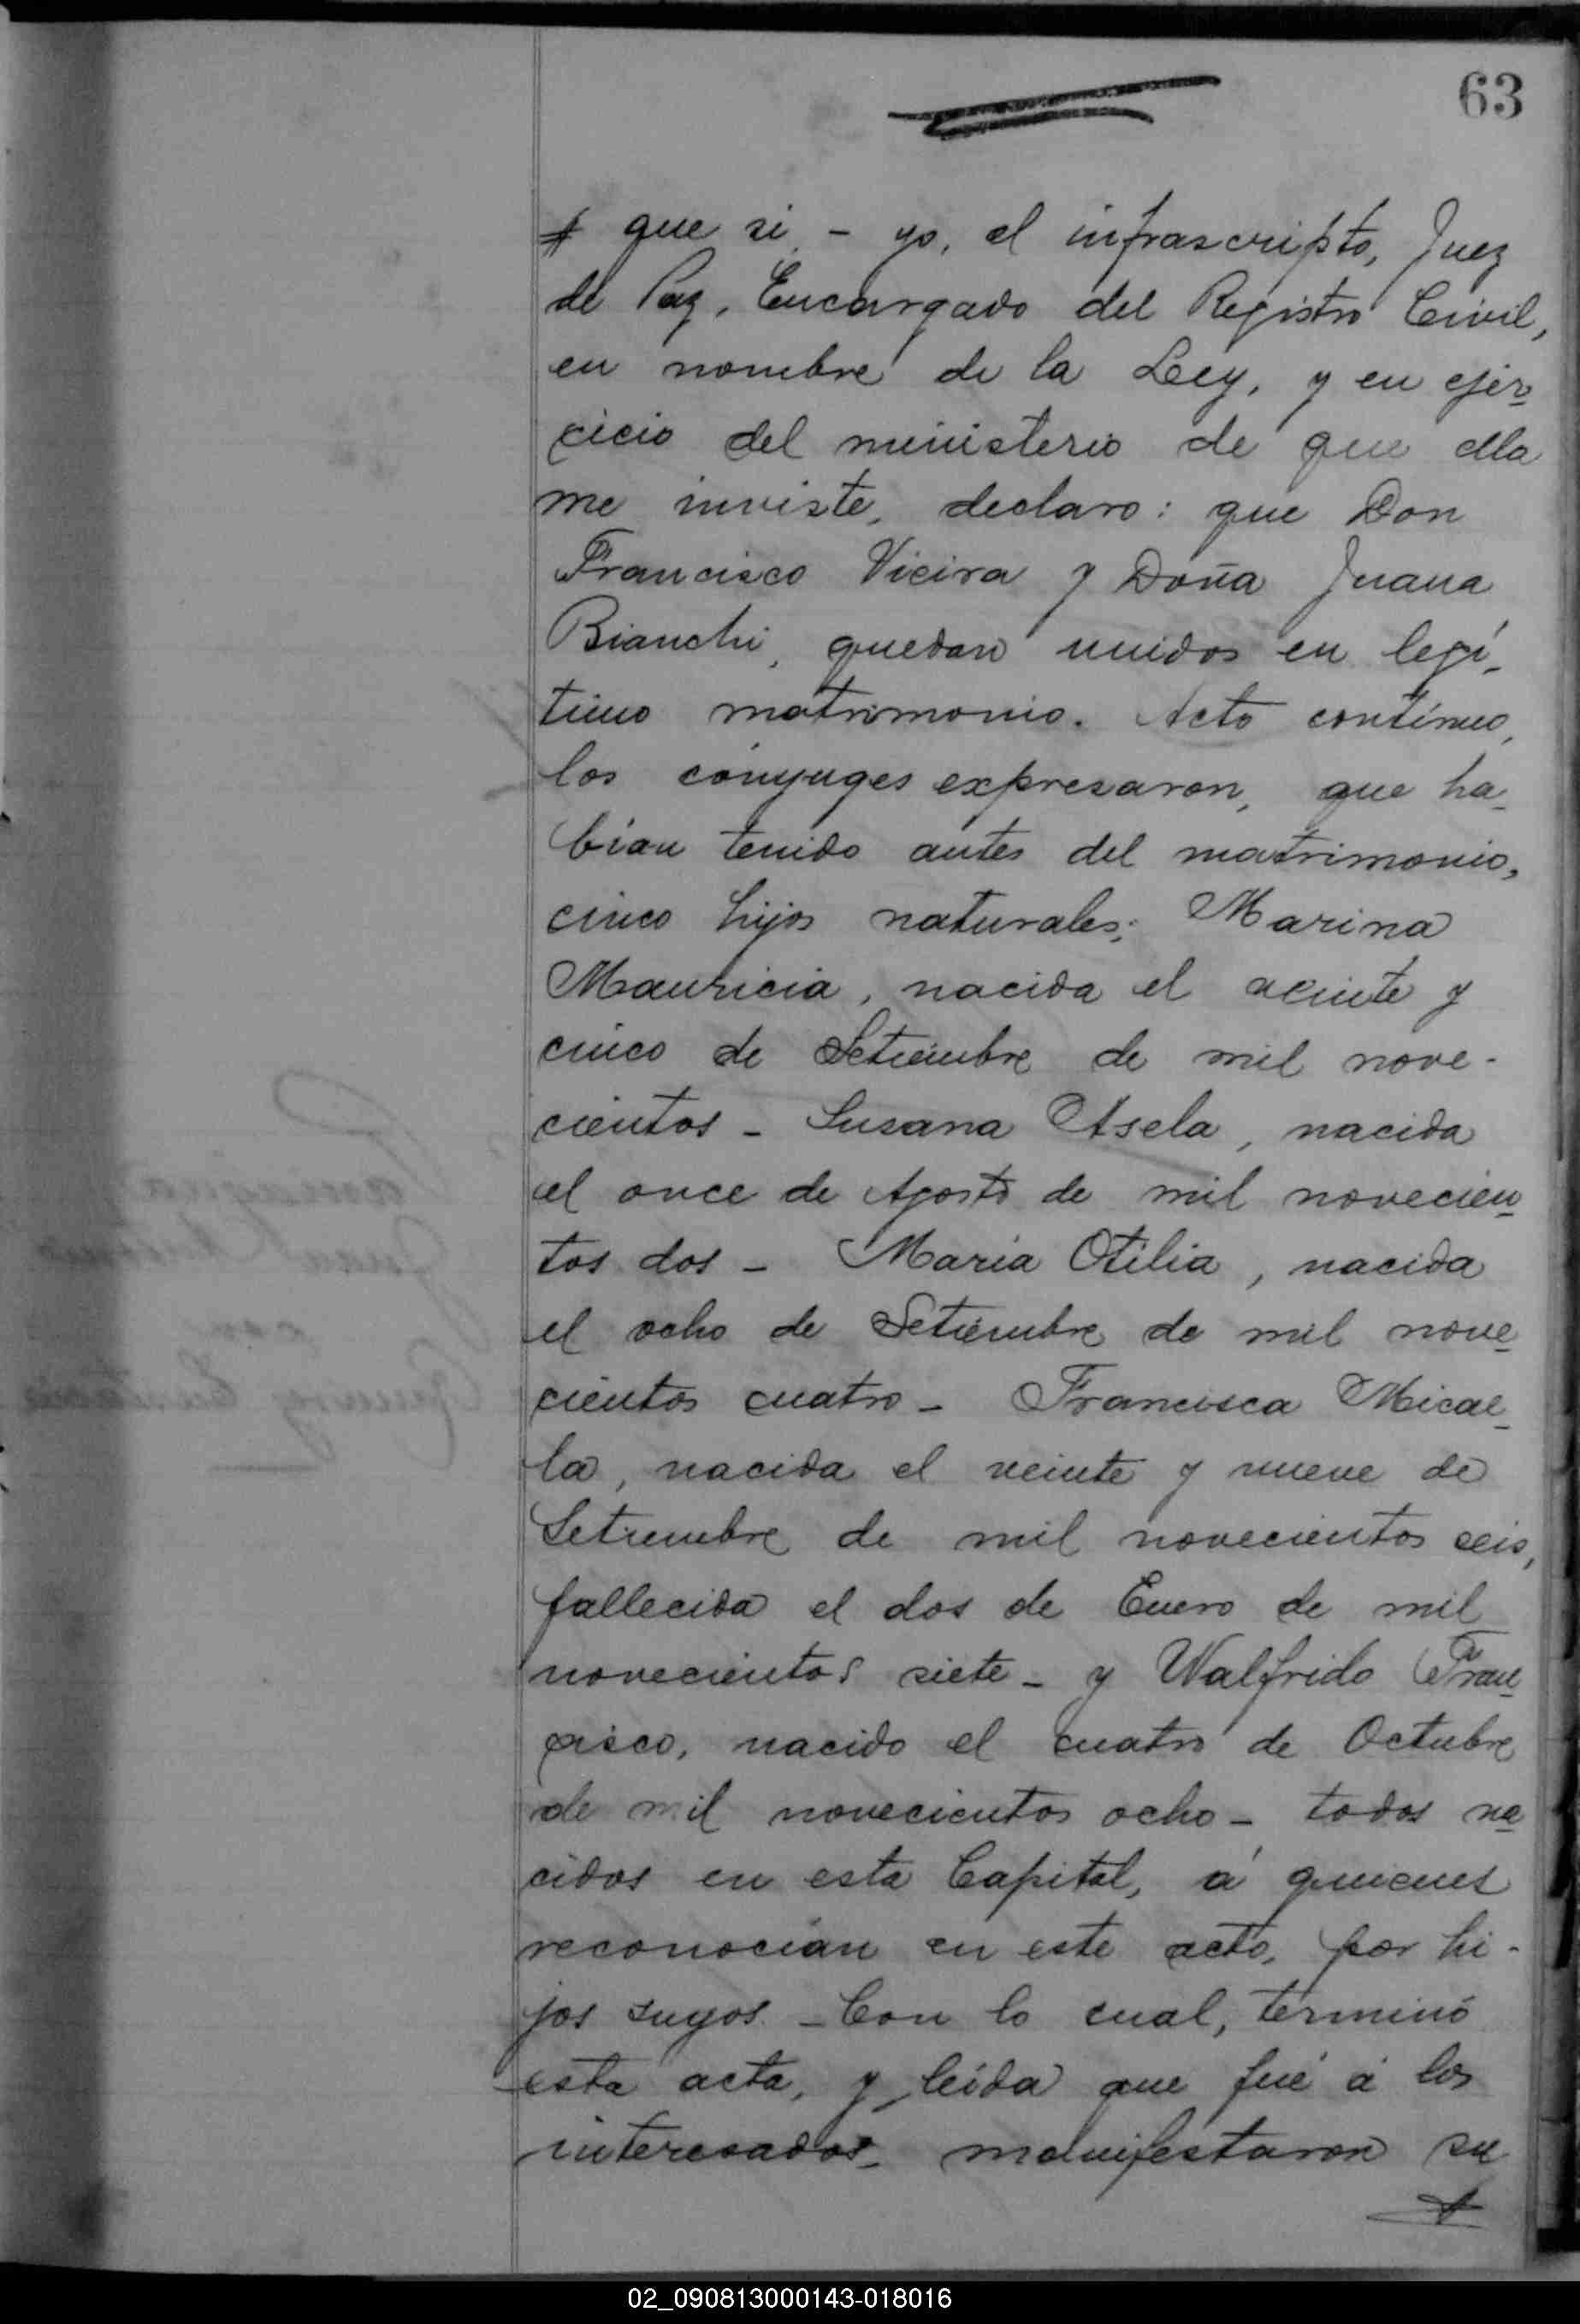 63
# que si. - yo, el infrascripto, Juez
de Paz, Encargado del Registro Civil,
en nombre de la Ley, y en ejer-
cicio del ministerio de que ella
me inviste, declaro: que Don
Francisco Vieira y Doña Juana
Bianchi, quedan unidos en legí-
timo matrimonio. Acto contínuo,
los cónyuges expresaron, que ha-
bían tenido antes del matrimonio,
cinco hijos naturales: Marina
Mauricia, nacida el veinte y
cinco de Setiembre de mil nove-
cientos - Susana Asela, nacida
el once de Agosto de mil novecien-
tos dos - María Otilia, nacida
el ocho de Setiembre de mil nove-
cientos cuatro - Francisca Micae-
la, nacida el veinte y nueve de
Setiembre de mil novecientos seis,
fallecida el dos de Enero de mil
novecientos siete - y Walfrido Fran-
cisco, nacido el cuatro de Octubre
de mil novecientos ocho - todos na-
cidos en esta Capital, á quienes
reconocían en este acto, por hi-
jos suyos. - Con lo cual, terminó
esta acta, y leída que fué á los
interesados, manifestaron su
02_090813000143-018016